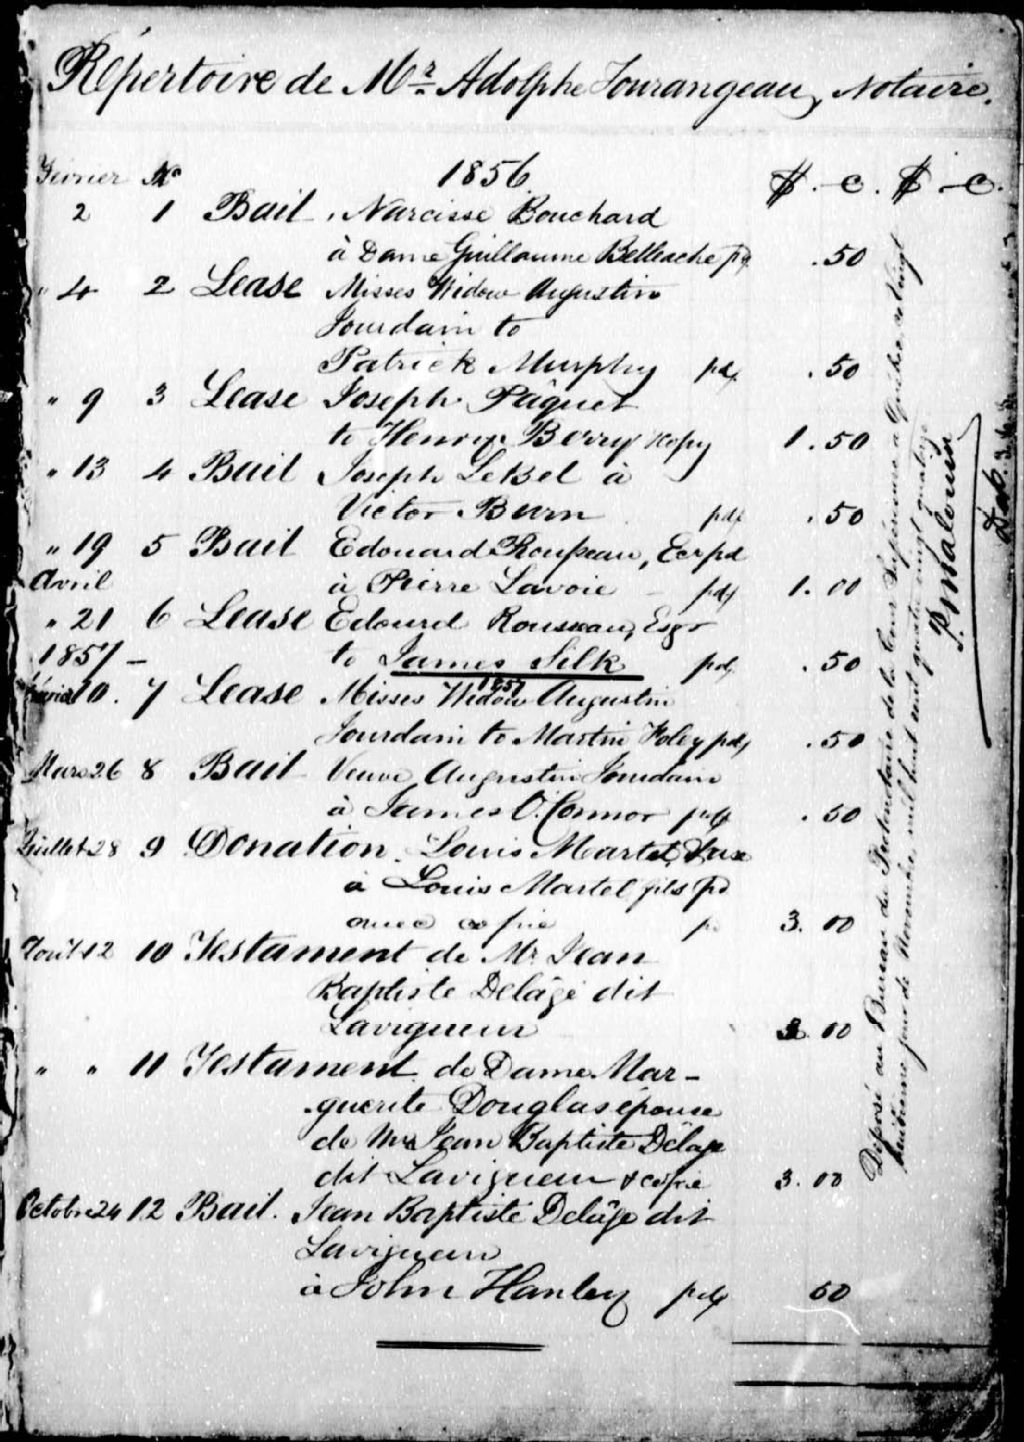 Répertoire de Mr. Adolphe Tourangeau, Notaire.
Février No 1856 $ . c . $ . c .
2 1 Bail . Narcisse Bouchard
à Dame Guillaume Belleache .50
" 4 2 Lease Misses Widow Augustin
Jourdain to
Patrick Murphy pd .50
" 9 3 Lease Joseph Pâquet
to Henry Berry & Copy 1.50
" 13 4 Bail Joseph LeBel à
Victor Burn pd .50
" 19 5 Bail Edouard Rousseau, Ecr pd
Avril à Pierre Lavoie - pd 1.00
" 21 6 Lease Edourd Rousseau, Esqr
1857 - to James Silk pd .50
1857
Février 10. 7 Lease Misses Widow Augustin
Jourdain to Martin Foley pd .50
Mars 26 8 Bail Veuve Augustin Jourdain
à James O'Connor pd .50
Juillet 28 9 Donation. Louis Martel & ux
à Louis Martel fils pd
avec copie p 3.00
Août 12 10 Testament de Mr Jean
Baptiste Delâge dit
Lavigueur 3.00
" " 11 Testament de Dame Mar-
guerite Douglas épouse
de Mr Jean Baptiste Délage
dit Lavigueur & copie 3.00
Octobre 24 12 Bail. Jean Baptiste Delâge dit
Lavigueur
à John Hanley pd 50
Déposé au Bureau du Protonotaire de la Cour Supérieure à Québec, ce vingt
huitième jour de Novembre, mil huit cent quatre vingt quatorze
P. Malouin